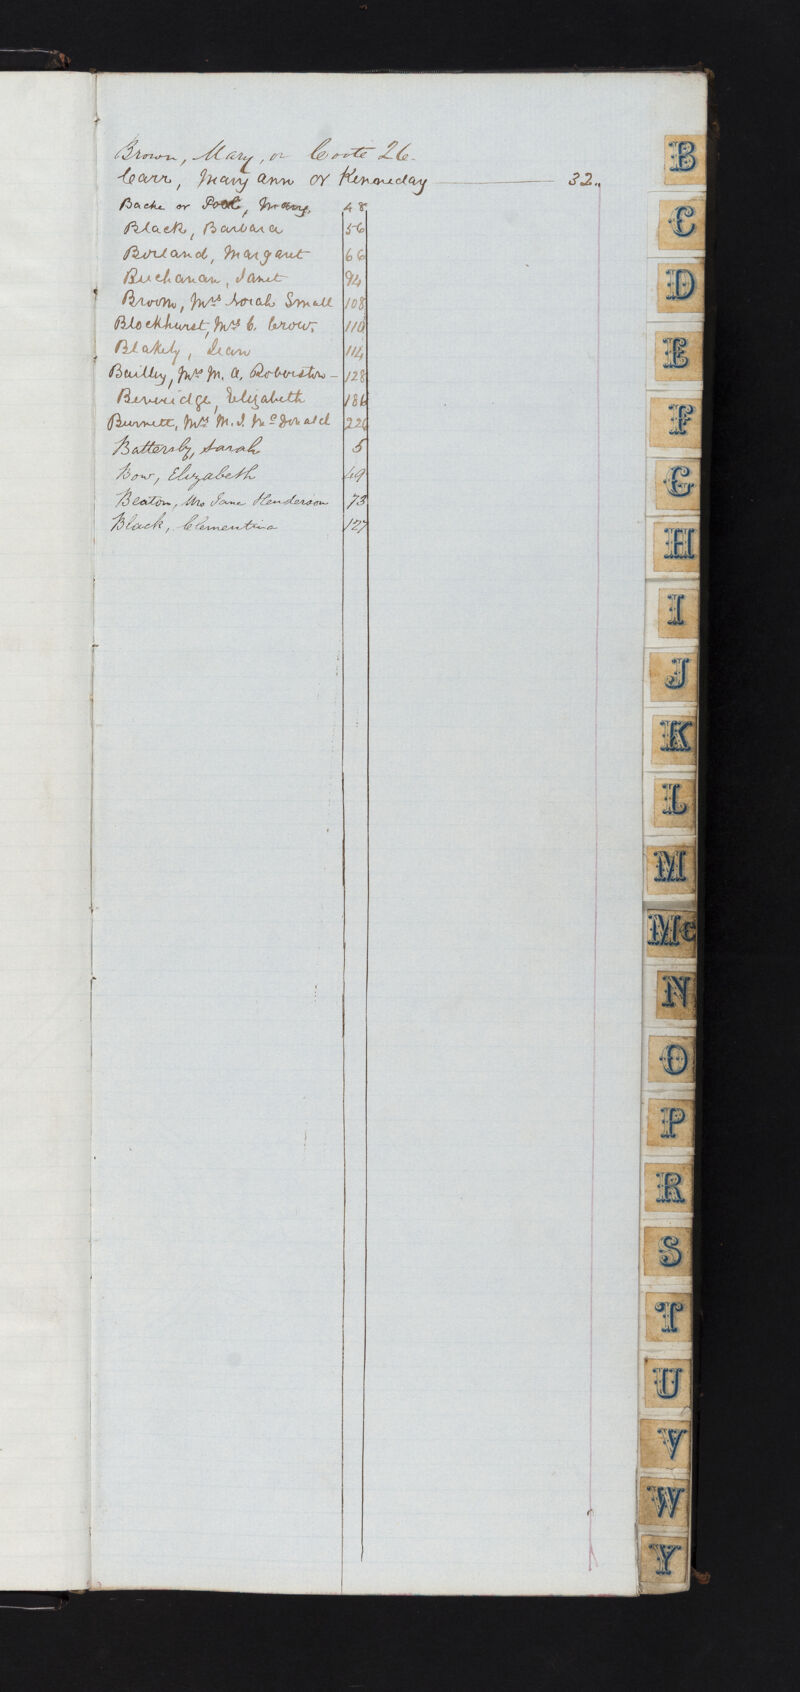 Brown, Mary, or Coote 26.
Carr, Mary Ann or Kenneday 32
Bache or Mary. 48
Black, Barbara 56
Borland, Margaret 66
Buchanan, Janet 94
Broom, Mrs Norah Small 108
Blockhurst, Mrs C. Crow. 110
Blakely, Jean 114
Bailley, Mrs M. A. Roberston - 128
Beveridge, Elizabeth 186
Burnett, Mrs M. J. McDonald 226
Battersby, Sarah 5
Bow, Elizabeth 49
Beaton, Mrs Jane Henderson 73
Black, Clementina 127
B
C
D
E
F
G
H
I
J
K
L
M
Mc
N
O
P
R
S
T
U
V
W
Y